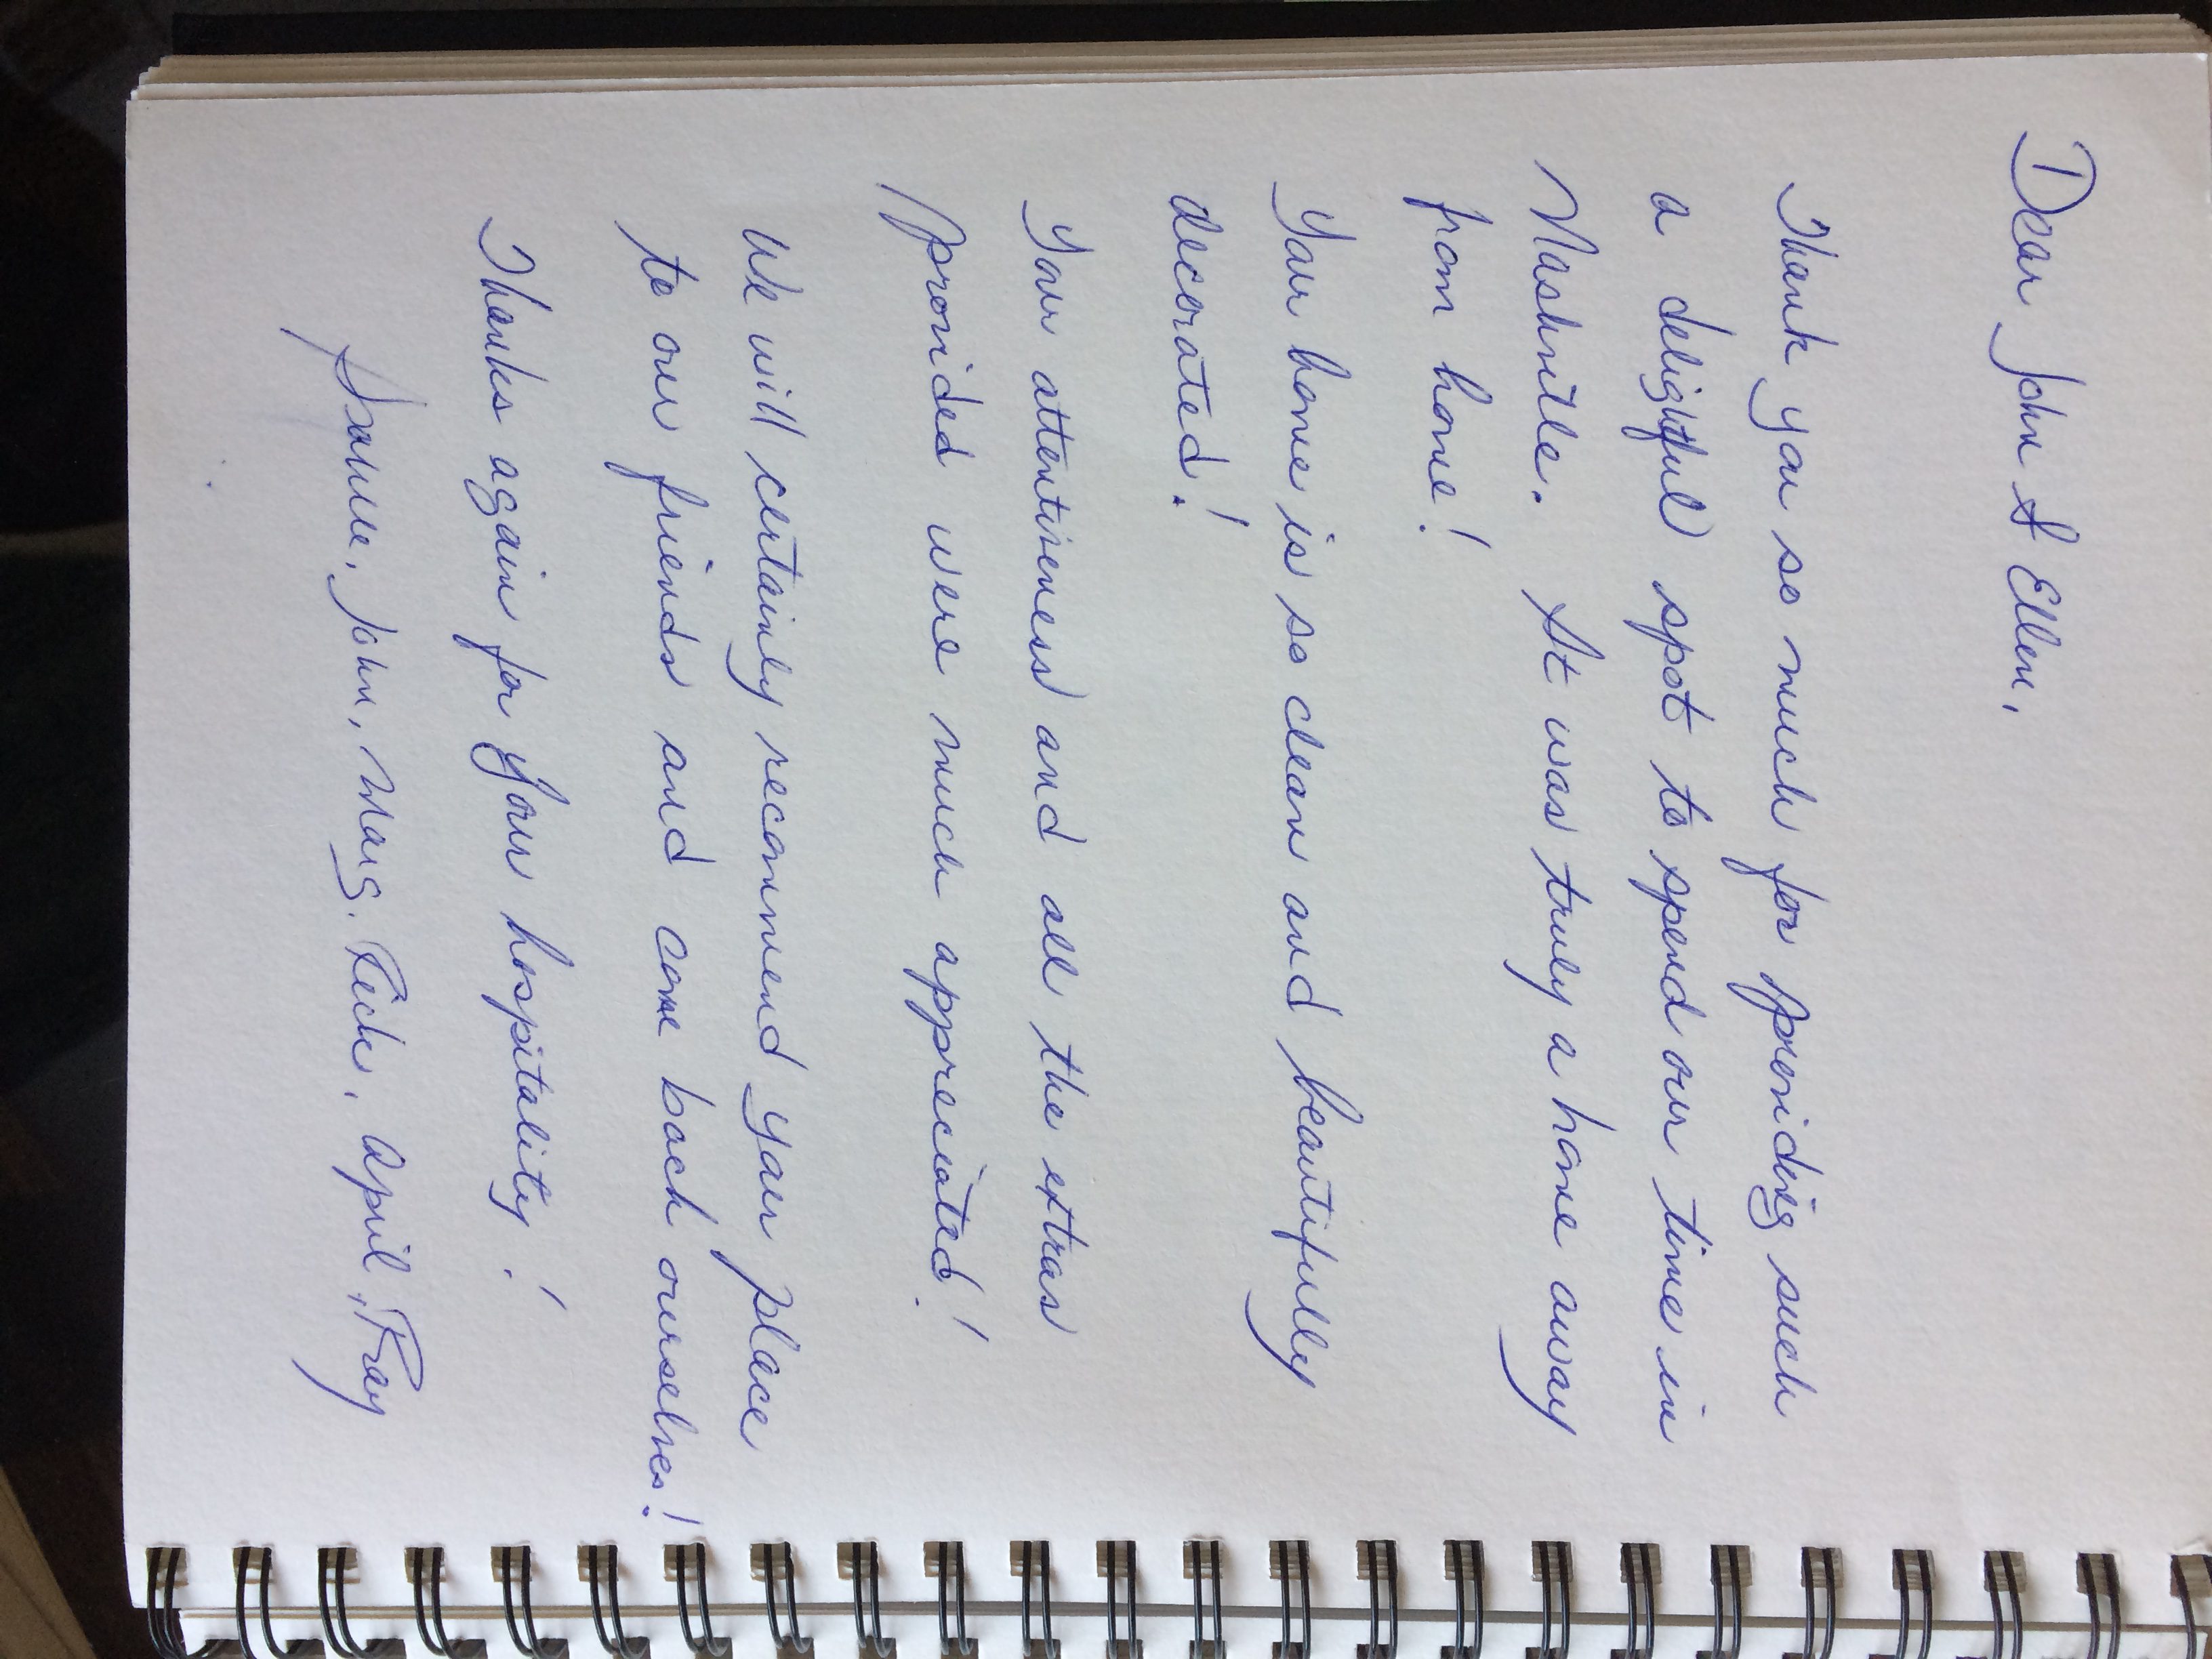 Dear John & Ellen,
Thank you so much for providing such
a delightful spot to spend our time in
Nashville. It was truly a home away
from home!
Your home is so clean and beautifully
decorated!
Your attentiveness and all the extras
provided were much appreciated!
We will certainly recommend your place
to our friends and come back ourselves!
Thanks again for your hospitality!
John, Marg, April, Ray